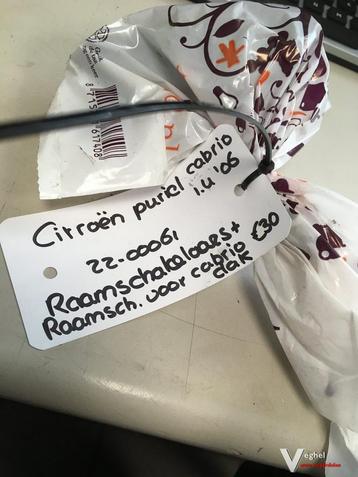 Citroën puriel cabrio
1.4 '06
22-00061
€30
Raamschakelaars +
Raamsch. voor cabrio
dak
Veghel